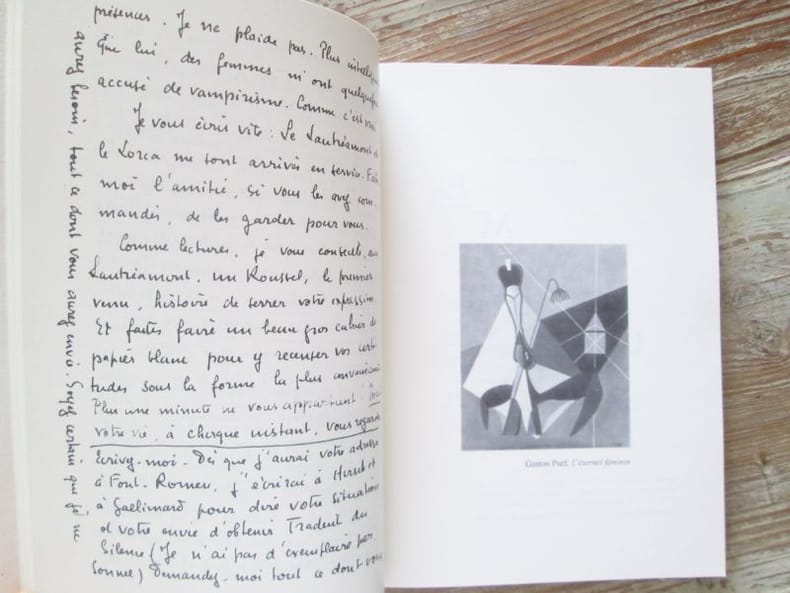 présences. Je ne plaide pas. Plus intellig
que lui, des femmes m'ont quelquefois
accusé de vampirisme. Comme c'est vrai
Je vous écris vite : Le Lautréamont et
le Lorca me sont arrivés en service. Fai
moi l'amitié, si vous les avez com-
mandés, de les garder pour vous.
Comme lectures, je vous conseille, avec
Lautréamont, un Roussel, le premier
venu, histoire de serrer votre expression.
Et faites faire un beau gros cahier de
papier blanc pour y recenser vos certi
tudes sous la forme la plus
Plus une minute ne vous appartient :
votre vie, à chaque instant, vous regarde
Ecrivez-moi - Dès que j'aurai votre adresse
à Font-Romeu, j'écrirai à Hirsch et
à Gallimard pour dire votre situation
et votre envie d'obtenir Tradent du
Silence (Je n'ai pas d'exemplaire per-
sonnel) Demandez-moi tout ce dont vous
aurez besoin, tout ce dont vous aurez envie. Soyez certain que je ne
Gaston Puel. L'éternel féminin